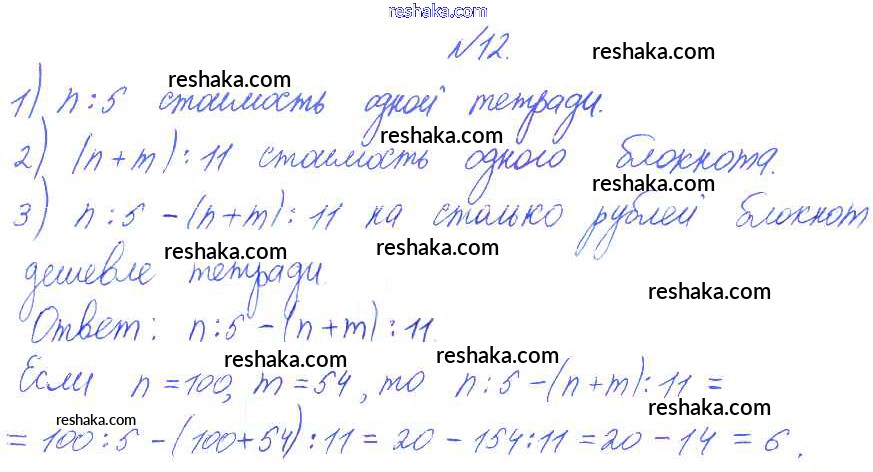 reshaka.com
№12. reshaka.com
reshaka.com
1) n : 5 стоимость одной тетради.
reshaka.com
2) (n + m) : 11 стоимость одного блокнота.
reshaka.com
3) n : 5 - (n + m) : 11 на столько рублей блокнот
reshaka.com reshaka.com
дешевле тетради.
reshaka.com
Ответ: n : 5 - (n + m) : 11.
reshaka.com reshaka.com
Если n = 100, m = 54, то n : 5 - (n + m) : 11 =
reshaka.com reshaka.com
= 100 : 5 - (100 + 54) : 11 = 20 - 154 : 11 = 20 - 14 = 6.
reshaka.com reshaka.com